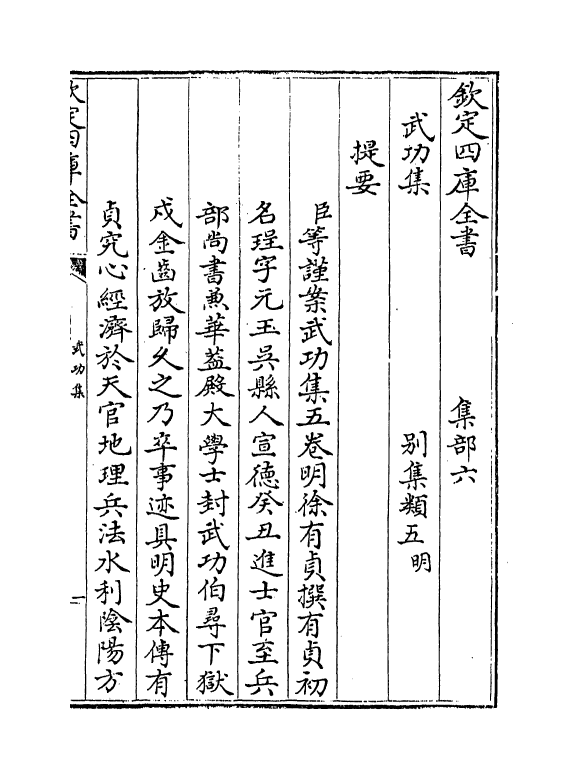 欽定四庫全書　集部六
武功集　别集類五 明
提要
臣等謹案武功集五卷明徐有貞撰有貞初
名珵字元玉吳縣人宣德癸丑進士官至兵
部尚書兼華葢殿大學士封武功伯尋下獄
戍金齒放歸久之乃卒事迹具明史本傳有
貞究心經濟於天官地理兵法水利陰陽方
欽定四庫全書　武功集　一